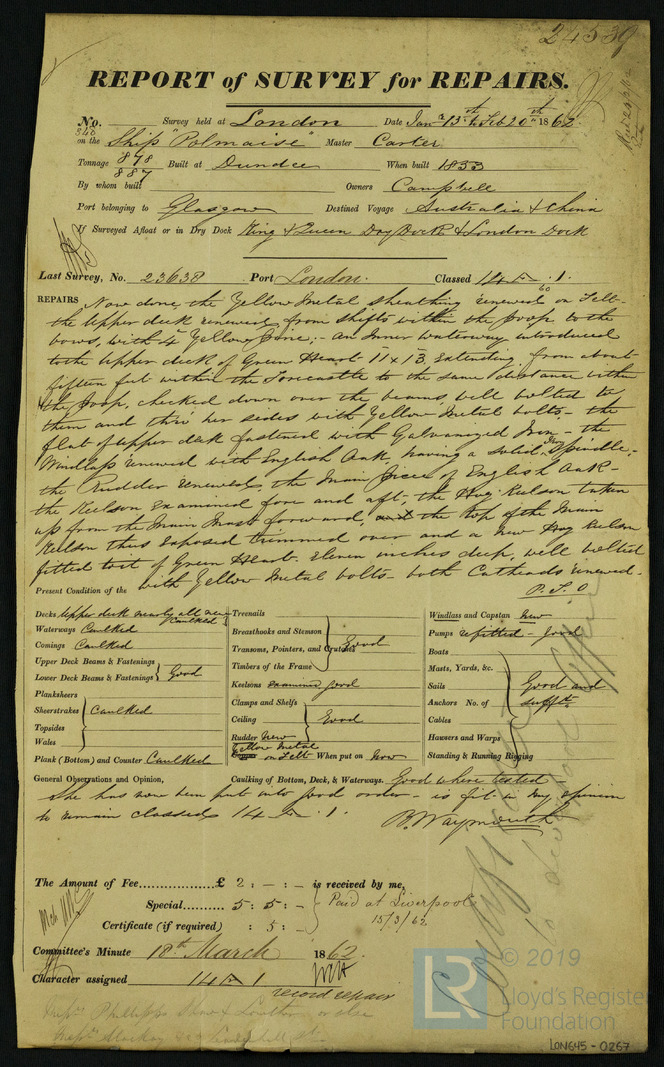 24539
REPORT of SURVEY for REPAIRS.
No. Survey held at London Date Jany 13th to Feb 20th 1862
840
on the Ship "Polmaise" Master Carter
Tonnage 878 Built at Dundee When built 1853
887
By whom built Owners Campbell
Port belonging to Glasgow Destined Voyage Australia & China
If Surveyed Afloat or in Dry Dock King & Queen Dry Dock & London Dock
Last Survey, No. 23638 Port London. Classed 14 A .1.
60
REPAIRS Now done, the Yellow Metal sheathing renewed on Felt-
the Upper deck renewed from shifts within the poop to the
bows, with 4" Yellow Pine; - an Inner waterway introduced
to the Upper deck of Green Heart 11 x 13 Extending from about
fifteen feet within the Forecastle to the same distance within
the poop, checked down over the beams, well bolted to
them and thro' her sides with Yellow Metal bolts - the
flat of upper deck fastened with Galvanized Iron - the
Windlass renewed with English Oak, having a solid Iron Spindle -
the Rudder renewed, the Main piece of English Oak -
the Keelson Examined fore and aft; the Hog Keelson taken
up from the Main Mast forward, and the top of the Main
Keelson thus exposed trimmed over and a new Hog Keelson
fitted to it of Green Heart. Eleven inches deep, well bolted
with Yellow Metal bolts - both Catheads renewed -
P.T.O
Present Condition of the
Decks Upper deck nearly all new Caulked
Waterways Caulked
Comings Caulked
Upper Deck Beams & Fastenings
Lower Deck Beams & Fastenings Good
Planksheers
Sheerstrakes Caulked
Topsides
Wales
Plank (Bottom) and Counter Caulked
Treenails
Breasthooks and Stemson
Transoms, Pointers, and Crutches Good
Timbers of the Frame
Keelsons examined good
Clamps and Shelfs
Ceiling Good
Rudder New
Yellow Metal
on Felt When put on Now
Windlass and Capstan New
Pumps refitted - Good
Boats
Masts, Yards, &c.
Sails Good and
Anchors No. of sufft
Cables
Hawsers and Warps
Standing & Running Rigging
General Observations and Opinion, Caulking of Bottom, Deck, & Waterways. Good where tested -
She has now been put into good order - is fit in my opinion
to remain classed 14 A .1.
B. Waymouth
The Amount of Fee £ 2 : - : - is received by me,
Special 5 : 5 : - Paid at Liverpool
15/3/62
Certificate (if required) : 5 : -
Committee's Minute 18th March 1862
Character assigned 14 A 1
record repair
© 2019
LR
Lloyd's Register
Foundation
LON645 - 0267